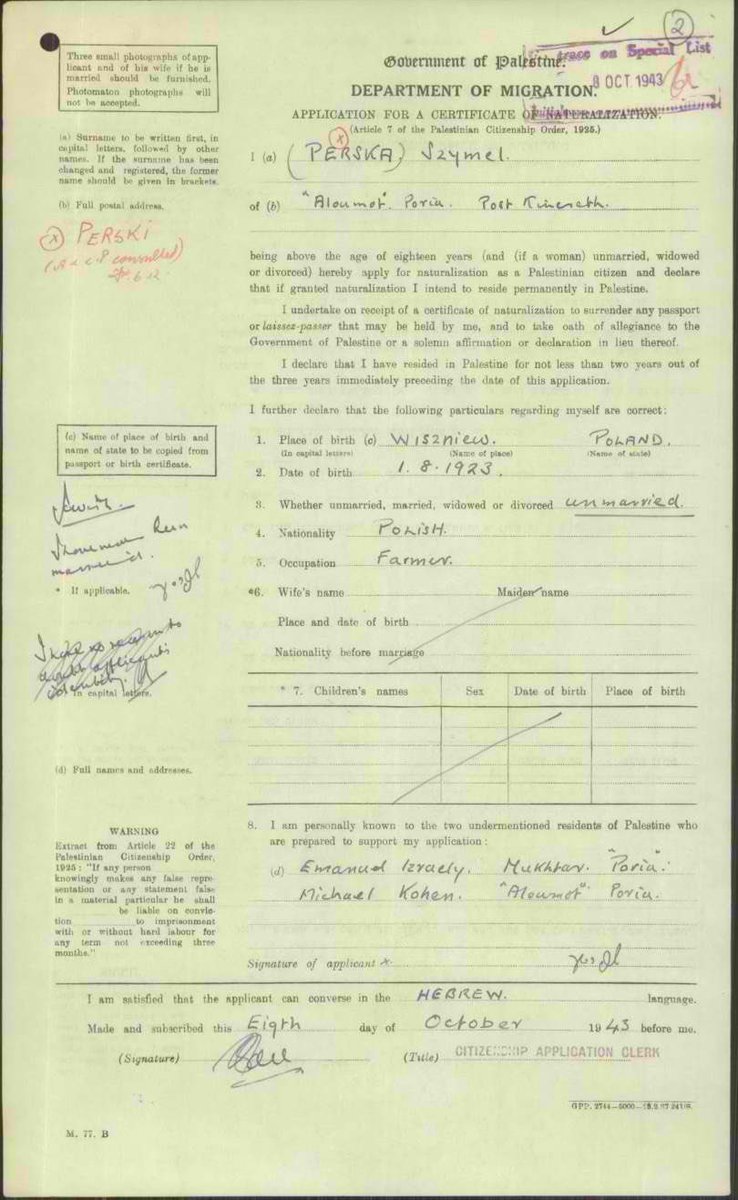 ✓ 2
Three small photographs of app-
licant and of his wife if he is
married should be furnished.
Photomaton photographs will
not be accepted.
Government of Palestine.
trace on Special List
8 OCT 1943
DEPARTMENT OF MIGRATION.
APPLICATION FOR A CERTIFICATE OF NATURALIZATION.
(Article 7 of the Palestinian Citizenship Order, 1925.)
(a) Surname to be written first, in
capital letters, followed by other
names. If the surname has been
changed and registered, the former
name should be given in brackets.
I (a) (PERSKA) Szymel.
x
(b) Full postal address.
of (b) "Aloumot" Poria. Post Kinerath.
x PERSKI
being above the age of eighteen years (and (if a woman) unmarried, widowed
or divorced) hereby apply for naturalization as a Palestinian citizen and declare
that if granted naturalization I intend to reside permanently in Palestine.
I undertake on receipt of a certificate of naturalization to surrender any passport
or laissez-passer that may be held by me, and to take oath of allegiance to the
Government of Palestine or a solemn affirmation or declaration in lieu thereof.
I declare that I have resided in Palestine for not less than two years out of
the three years immediately preceding the date of this application.
I further declare that the following particulars regarding myself are correct:
(c) Name of place of birth and
name of state to be copied from
passport or birth certificate.
1. Place of birth (c) WISZNIEW. POLAND.
(In capital letters) (Name of place) (Name of state)
2. Date of birth 1.8.1923.
3. Whether unmarried, married, widowed or divorced unmarried.
4. Nationality POLISH.
5. Occupation Farmer.
* If applicable.
*6. Wife's name Maiden name
Place and date of birth
Nationality before marriage
In capital letters.
* 7. Children's names Sex Date of birth Place of birth
(d) Full names and addresses.
8. I am personally known to the two undermentioned residents of Palestine who
are prepared to support my application:
(d) Emanuel Izraely. Mukhtar. "Poria".
Michael Kohen. "Aloumot" Poria.
WARNING
Extract from Article 22 of the
Palestinian Citizenship Order,
1925: "If any person
knowingly makes any false repre-
sentation or any statement false
in a material particular he shall
be liable on convic-
tion to imprisonment
with or without hard labour for
any term not exceeding three
months."
Signature of applicant x
I am satisfied that the applicant can converse in the HEBREW. language.
Made and subscribed this Eigth day of October 1943 before me.
(Signature) (Title) CITIZENSHIP APPLICATION CLERK
GPP. 2744—5000—
M. 77. B